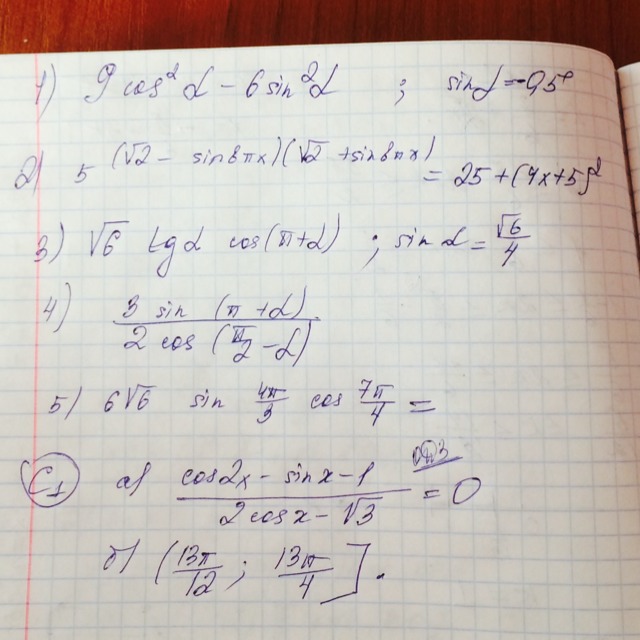 1) 9 cos²α - 6 sin²α ; sinα = -0,5
2) 5^((√2 - sin8πx)(√2 + sin8πx)) = 25 + (4x+5)²
3) √6 tgα cos(π+α) ; sin α = √6/4
4) 3 sin (π + α) / 2 cos (π/2 - α)
5) 6√6 sin 4π/3 cos 7π/4 =
C1 а) (cos2x - sin x - 1) / (2 cos x - √3) = 0
б) (13π/12 ; 13π/4].